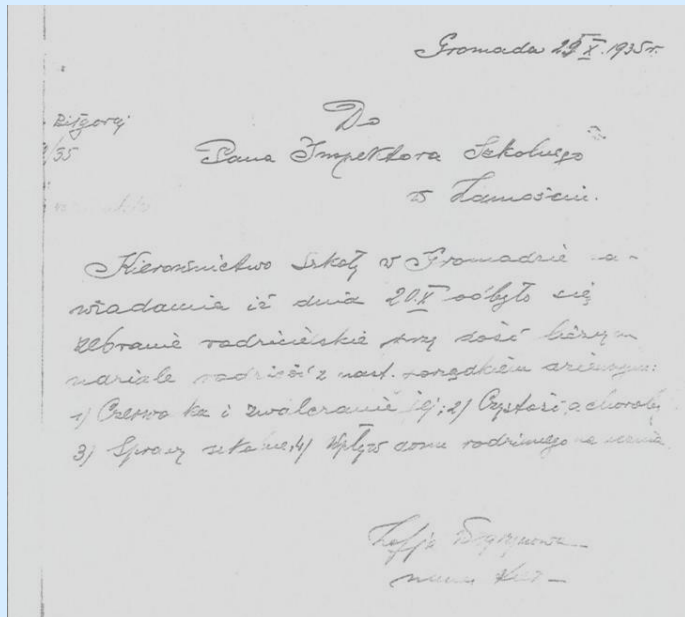 Gromada 29 X. 1935 r.
Biłgoraj
/35
Do
Pana Inspektora Szkolnego
w Zamościu.
Kierownictwo Szkoły w Gromadzie za-
wiadamia iż dnia 20.X odbyło się
zebranie rodzicielskie przy dość licznym
udziale rodziców z nast. porządkiem dziennym:
1) Czerwonka i zwalczanie jej; 2) Czystość, a choroby
3) Sprawy szkolne; 4) Wpływ domu rodzinnego na ucznia
Zofja